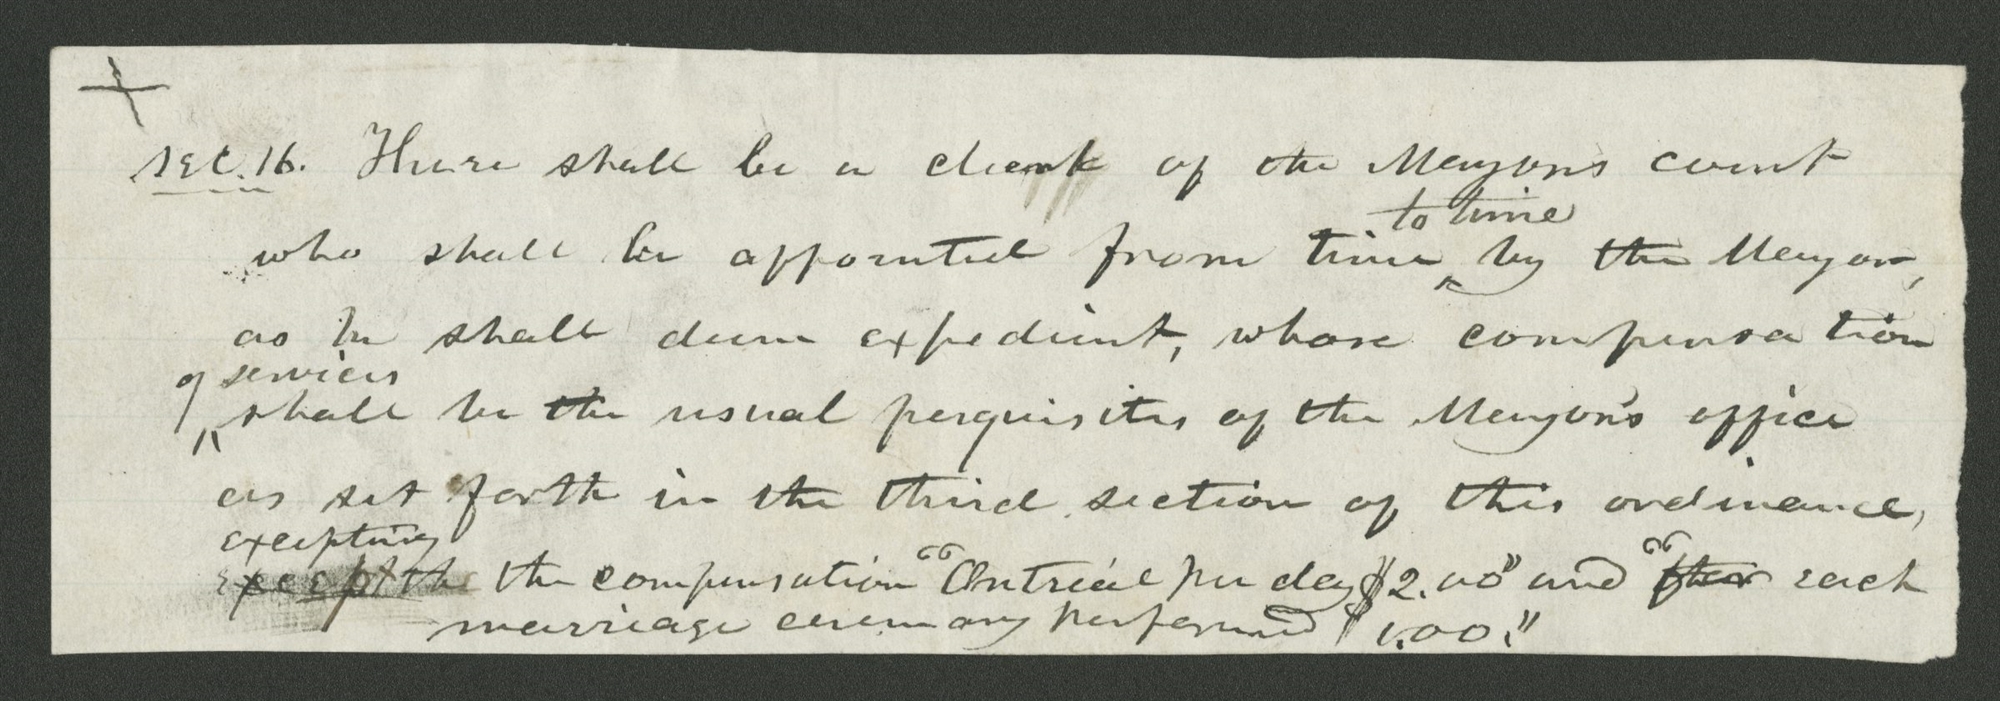 Sec. 16. There shall be a clerk of the Mayors court
to time
who shall be appointed from time by the Mayor,
as he shall deem expedient, whose compensation
of services
shall be the usual perquisites of the Mayor's office
as set forth in the third section of this ordinance,
excepting
except the the compensation "On trial per day $2.00" and " each
marriage ceremony performed $1.00."